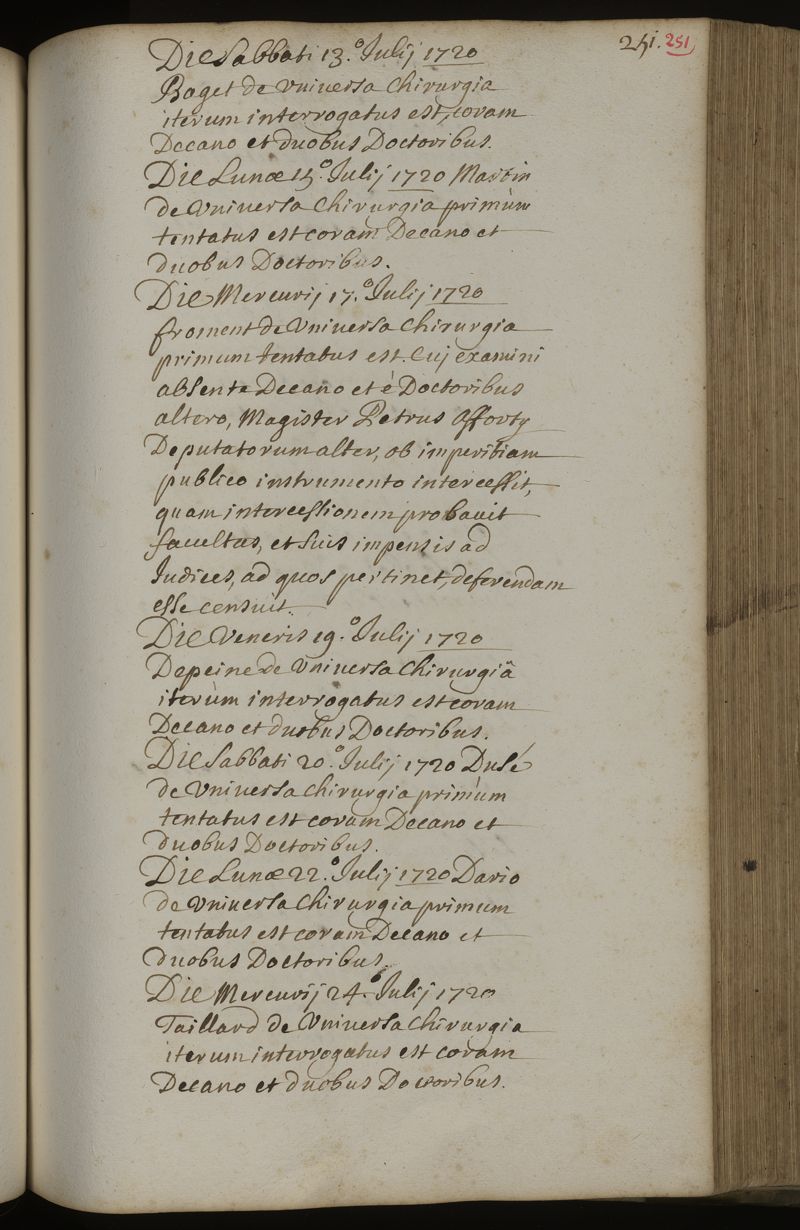 251. 251
Die Sabbati 13.° Julij 1720
Raget de Vniuersa Chirurgia
iterum interrogatus est, coram
Decano et duobus Doctoribus.
Die Lunæ 15.° Julij 1720 Martin
de Vniuersa Chirurgia primùm
tentatus est coram Decano et
duobus Doctoribus.
Die Mercurij 17.° Julij 1720
froment de Vniuersa Chirurgia
primum tentatus est. Cuj examini
absente Decano et è Doctoribus
altero, Magister Petrus Afforty
Deputatorum alter, ob imperitiam
publico instrumento intercessit,
quam intercessionem probauit
facultas, et suis impensis ad
Judices, ad quos pertinet, deferendam
esse censuit.
Die Veneris 19.° Julij 1720
Depeine de Vniuersa Chirurgiâ
iterùm interrogatus est coram
Decano et duobus Doctoribus.
Die Sabbati 20.° Julij 1720 Dusé
de Vniuersa Chirurgia primùm
tentatus est coram Decano et
duobus Doctoribus.
Die Lunæ 22.° Julij 1720 Dario
de Vniuersa Chirurgia primum
tentatus est coram Decano et
duobus Doctoribus.
Die Mercurij 24.° Julij 1720
Taillard de Vniuersa Chirurgia
iterum interrogatus est coram
Decano et duobus Doctoribus.